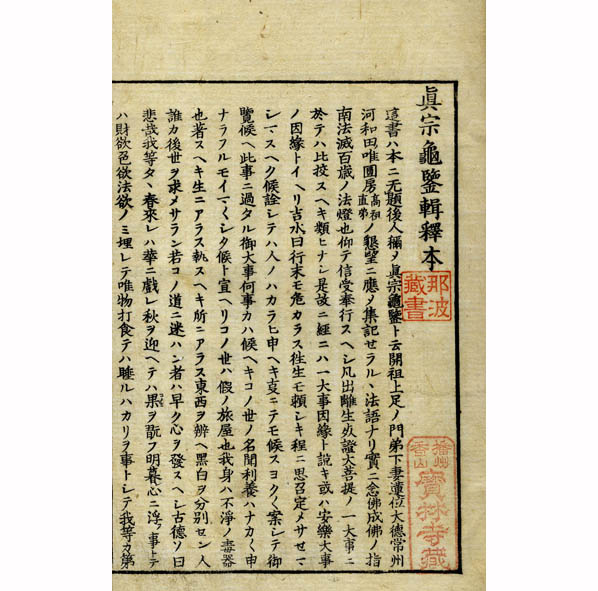 眞宗龜鑒輯釋本
這書ハ本ニ无題後人稱ソ眞宗龜鑒ト云開祖上足ノ門弟下妻蓮位大德常州
河和田唯圓房高祖直弟ノ懇望ニ應ソ集記セラルヽ法語ナリ實ニ念佛成佛ノ指
南法滅百歲ノ法燈也仰テ信受奉行スヘシ凡出離生死證大菩提ノ一大事ニ
於テハ比挍スヘキ類ヒナシ是故ニ經ニハ一大事因緣ト說キ或ハ安樂大事
ノ因緣トイヘリ吉水曰行末モ危カラス徃生モ賴シキ程ニ思召定メサセ
スヘク候詮シテハ人ノハカラヒ申ヘキ支ニテモ候スヨクヽ案シテ御
覽候ヘ此事ニ過タル御大事何事カハ候ヘキコノ世ノ名聞利養ハナカヽ申
ナラフルモイマヽシク候ト宣ヘリコノ世ハ假ノ旅屋也我身ハ不淨ノ毒器
也著スヘキ生ニアラス執スヘキ所ニアラス東西ヲ辨ヘ黑白ヲ分別セン人
誰カ後世ヲ求メサラン若コノ道ニ迷ハン者ハ早ク心ヲ發スヘシ古德ソ曰
悲哉我等タヽ春來レハ華ニ戲レ秋ヲ迎ヘテハ果ヲ翫フ明暮心ニ浮フ事トテ
ハ財欲色欲法欲ノミ埋レテ唯物打食テハ睡ルハカリヲ事トシテ我等カ第
那波藏書
播州香山寶林寺藏